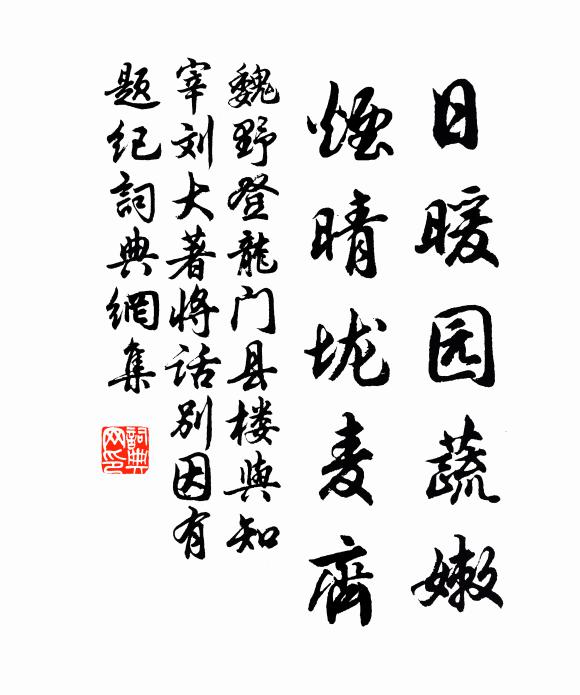 日暖园蔬嫩
煙晴垅麦齊
魏野登龍门县楼與知
宰刘大著将话别因有
题纪詞典網集
詞典
网印